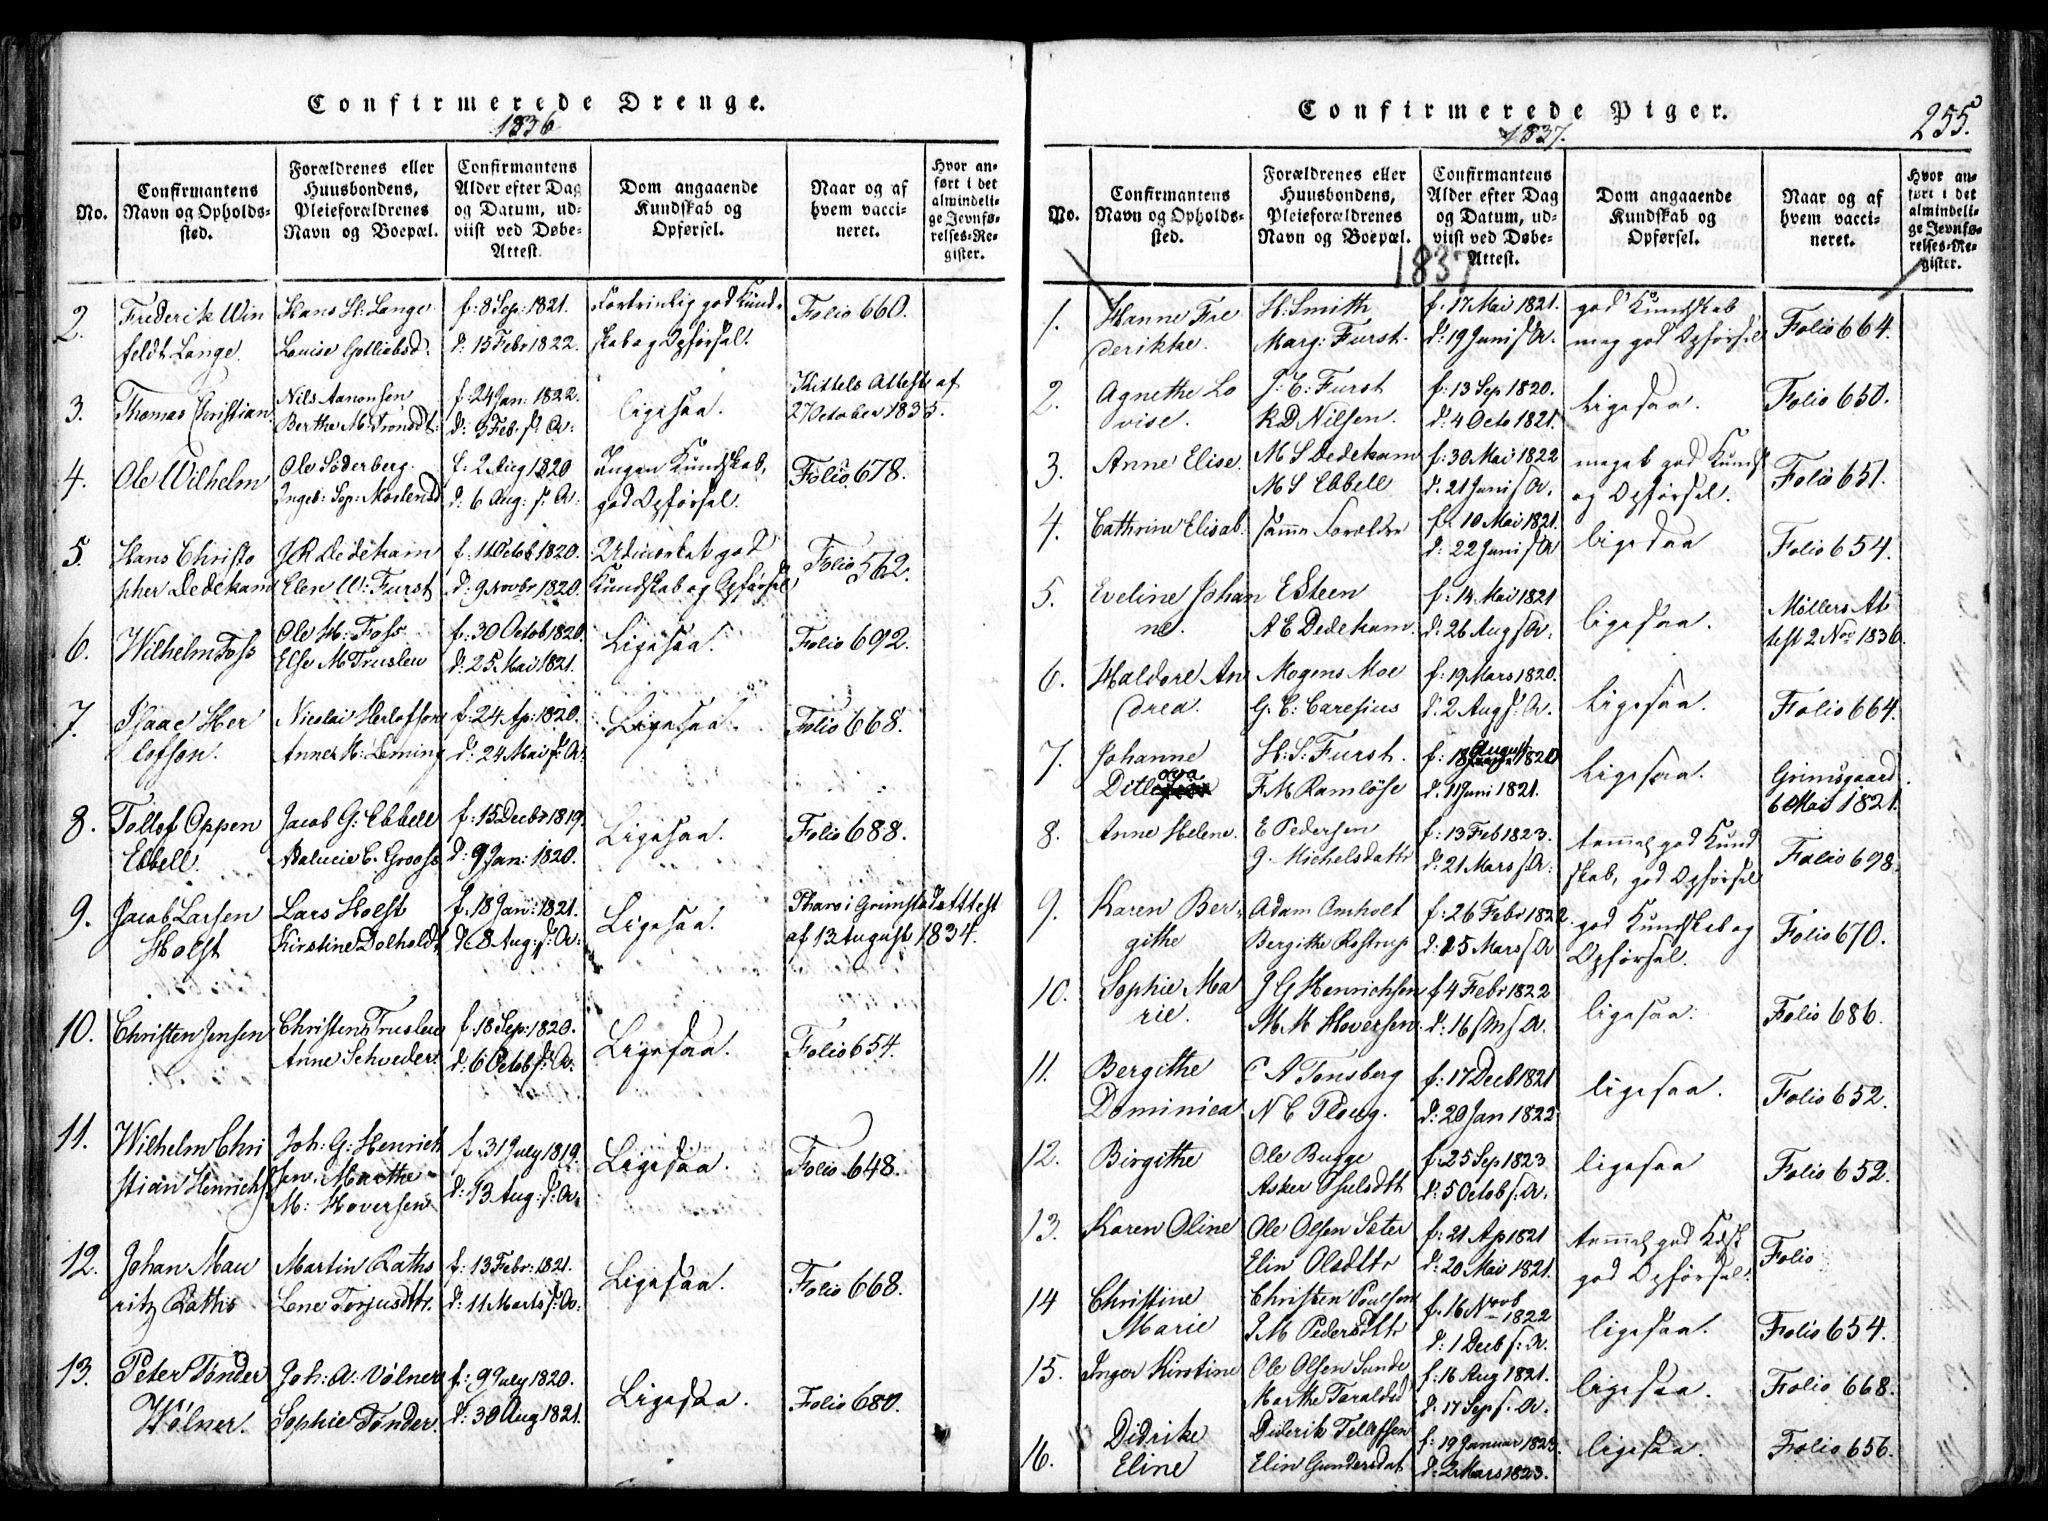 Confirmerede Drenge.
1836
No.
Confirmantens Navn og Opholdssted.
Forældrenes eller Huusbondens, Pleieforældrenes Navn og Boepæl.
Confirmantens Alder efter Dag og Datum, udviist ved Døbe-Attest.
Dom angaaende Kundskab og Opførsel.
Naar og af hvem vaccineret.
Hvor anført i det almindelige Jevnførelses-Register.
2. Frederik Win
feldt Lange.
Hans H: Lange
Louise Gotliebsd.
f: 8 Sep: 1821.
d: 15 Febr 1822.
Fortrinlig god Kund-
skab og Opførsel.
Folio 660.
3. Thomas Christian
Nils Aanonsen
Berthe M Trondsd:
f: 24 Jan: 1822.
d: 3 Feb. s: A:
ligesaa.
Kittels Attest af
27 October 1835.
4. Ole Wilhelm
Ole Söderberg.
Ingeb: Sop:
f: 2 Aug 1820
d: 6 Aug: s: A:
Ingen Kundskab,
god Opførsel.
Folio 678.
5. Hans Christo
pher Dedekam
J R Dedekam
Elen W: Furst
f: 11 Octob 1820.
d: 9 Novbr 1820.
Udmærket god
Kundskab og Opførsel
Folio 562.
6. Wilhelm Foss
Ole H: Foss
Else M Truslew
f: 30 Octob 1820.
d: 25 Mai 1821.
Ligesaa.
Folio 692.
7. Isaac Her
lofson.
Nicolai Herlofson
Anne H: Leming
f: 24 Ap: 1820.
d: 24 Mai s: A:
Ligesaa.
Folio 668.
8. Tellef Oppen
Ebbell.
Jacob G: Ebbell
Adalucie C. Grooss
f: 15 Decbr 1819.
d: 9 Jan: 1820.
Ligesaa.
Folio 688.
9. Jacob Larsen
Holst
Lars Holst
Kirstine Dolholdt
f. 18 Jan: 1821.
d: 8 Aug: s: A:
Ligesaa.
Pharo i Grimstad attest
af 13 August 1834.
10. Christen Jensen
Christen Truslew
Anne Schveder.
f: 18 Sep: 1820.
d: 6 Octob s: A:
Ligesaa.
Folio 654.
11. Wilhelm Chri
stian Henrichs
Joh: G: Henrich
sen, Marthe
M: Hoversen
f. 31 July 1819.
d: 13 Aug: s: A.
Ligesaa.
Folio 648.
12. Johan Mau
ritz Raths
Martin Raths
Lene Torjusdtr.
f: 13 Febr: 1821.
d: 11 Marts s: A:
Ligesaa.
Folio 668.
13. Peter Tønder
Völner.
Joh: A: Völner
Sophie Tønder.
f: 9 July 1820.
d: 30 Aug 1821.
Ligesaa.
Folio 680.
Confirmerede Piger.
1837.
255.
No.
Confirmantens Navn og Opholdssted.
Forældrenes eller Huusbondens, Pleieforældrenes Navn og Boepæl.
Confirmantens Alder efter Dag og Datum, udviist ved Døbe-Attest.
Dom angaaende Kundskab og Opførsel.
Naar og af hvem vaccineret.
Hvor anført i det almindelige Jevnførelses-Register.
1837
1. Hanne Fre
derikke.
H: Smith
Marg: Furst.
f: 17 Mai 1821.
d: 19 Juni s A.
god Kundskab
meg god Opførsel
Folio 664.
2. Agnethe Lo
vise.
J: C: Furst
R D Nilsen.
f: 13 Sep 1820.
d: 4 Octo 1821.
ligesaa.
Folio 650.
3. Anne Elise.
M S Dedekam
M S Ebbell
f: 30 Mai 1822
d. 21 Juni s A.
meget god Kundsk
og Opførsel.
Folio 651.
4. Cathrine Elisab.
samme Foreldre
f. 10 Mai 1821.
d: 22 Juni s A
ligesaa
Folio 654.
5. Eveline Johan
ne.
E Steen
A E Dedekam.
f: 14 Mai 1821
d: 26 Aug s A:
ligesaa.
Møllers At
test 2 Nov 1836.
6. Haldore An
drea.
Mogens Moe
G. C: Caresius
f: 19 Mars 1820.
d. 2 Aug s: A.
ligesaa.
Folio 664.
7. Johanne
Ditlova
H: S: Furst.
F. M Ramløse
f: 18 August 1820
d. 11 Juni 1821.
ligesaa.
Grimsgaard
6 Mai 1821.
8. Anne Helene.
E Pedersen
J. Michelsdattr
f: 13 Feb 1823.
d: 21 Mars s A:
temmel god Kund
skab, god Opførsel
Folio 698.
9. Karen Ber-
githe
Adam Omholt
Bergithe Rostrup
f: 26 Febr 1822.
d: 25 Mars s A
god Kundskab og
Opførsel.
Folio 670.
10. Sophie Ma
rie.
J G Henrichsen
M M Hoversen
f 4 Febr 1822
d: 16 s M s A.
ligesaa.
Folio 686.
11. Bergithe
Dominica
C A Tonsberg
N C Ploug.
f: 17 Decb 1821
d: 20 Jan 1822
ligesaa.
Folio 652.
12. Birgithe
Ole Bugge
f: 25 Sep 1823
d: 5 Octob s: A.
ligesaa
Folio 652.
13. Karen Oline
Ole Olsen Sater
Elin Olsdttr
f: 21 Ap 1821
d: 20 Mai 1821.
temmel god Kdsk
god Opførsel.
Folio
14 Christine
Marie
Christen Poulsen
J M Pedersdttr
f. 16 Novb 1822
d: 1 Decb s: A.
ligesaa.
Folio 654.
15. Inger Kirstine
Ole Olsen Sunde
Marthe Taraldsd
f: 16 Aug 1821.
d. 17 Sep s. A.
ligesaa.
Folio 668.
16. Didrike
Eline
Diderik Tellefsen
Elin Gundersdat
f: 19 Januar 1823.
d: 2 Mars 1823.
ligesaa.
Folio 656.